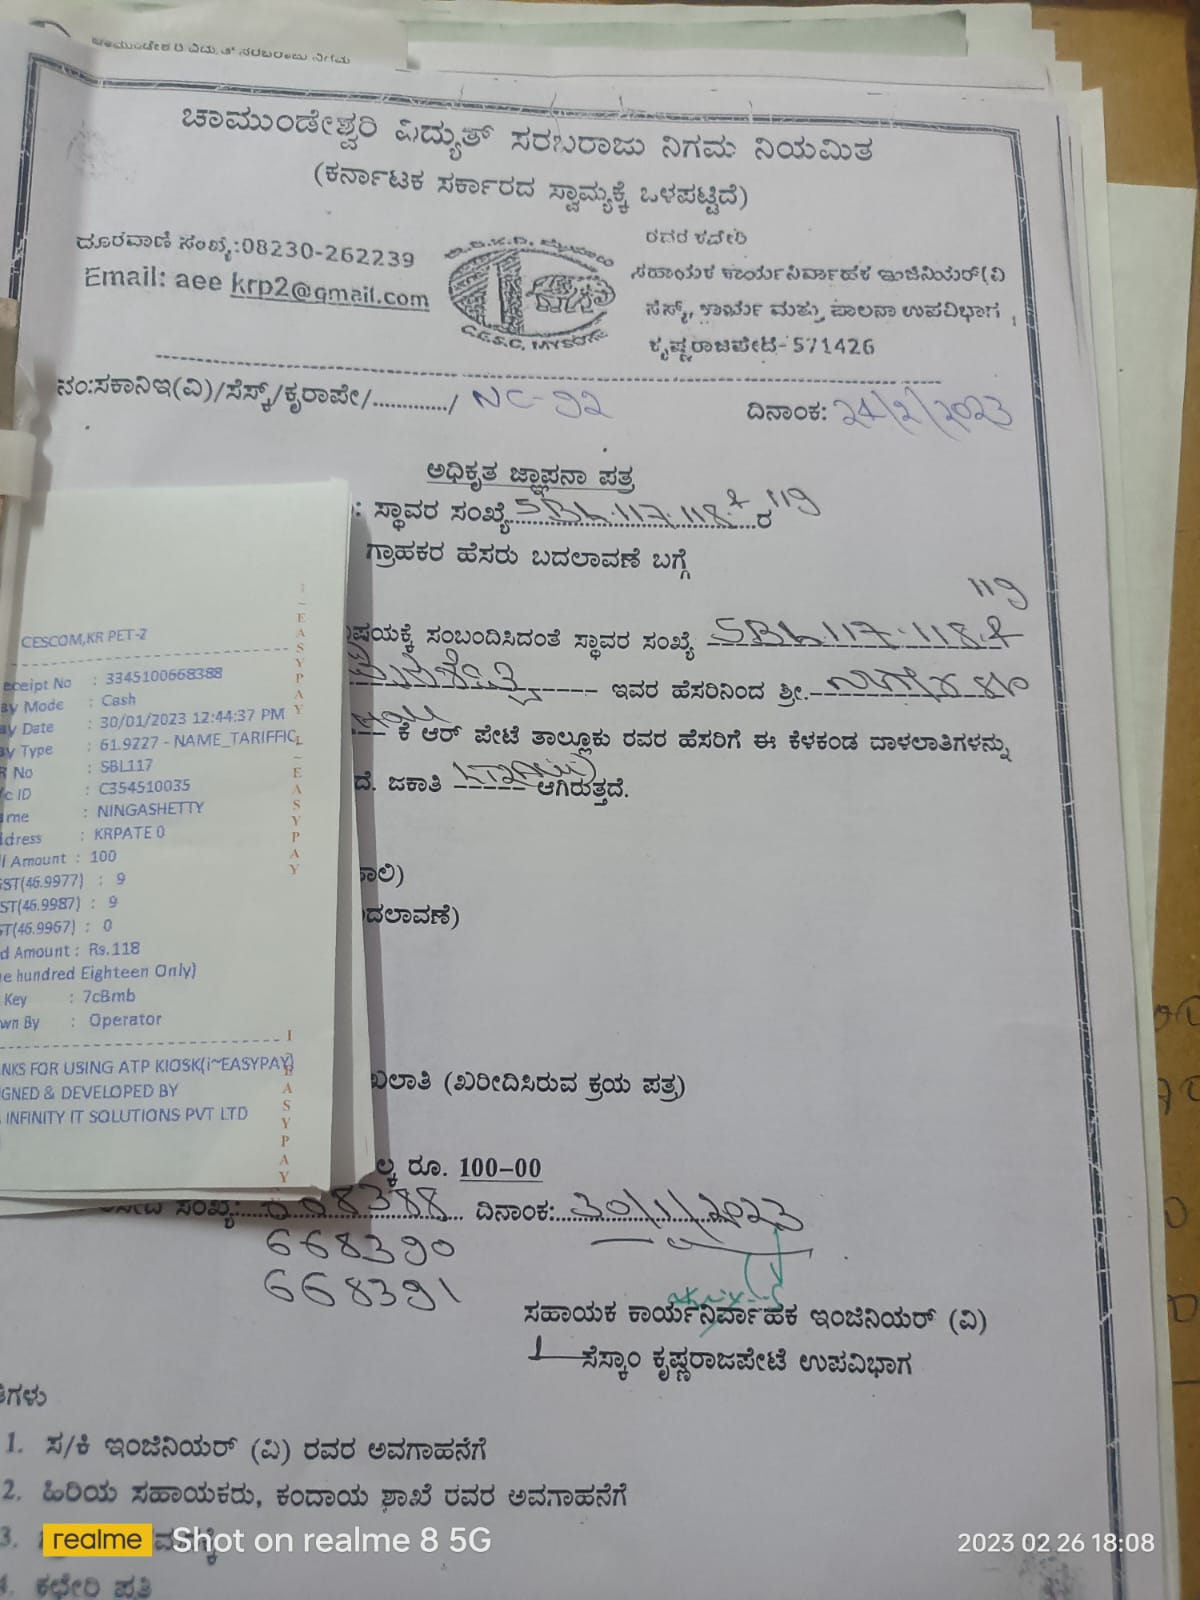 ಚಾಮುಂಡೇಶ್ವರಿ ವಿದ್ಯುತ್ ಸರಬರಾಜು ನಿಗಮ
ಚಾಮುಂಡೇಶ್ವರಿ ವಿದ್ಯುತ್ ಸರಬರಾಜು ನಿಗಮ ನಿಯಮಿತ
(ಕರ್ನಾಟಕ ಸರ್ಕಾರದ ಸ್ವಾಮ್ಯಕ್ಕೆ ಒಳಪಟ್ಟಿದೆ)
ದೂರವಾಣಿ ಸಂಖ್ಯೆ:08230-262239
Email: aee krp2@gmail.com
C.E.S.C. MYSORE
ರವರ ಕಛೇರಿ
ಸಹಾಯಕ ಕಾರ್ಯನಿರ್ವಾಹಕ ಇಂಜಿನಿಯರ್(ವಿ
ಸೆಸ್ಕ್, ಕಾರ್ಯ ಮತ್ತು ಪಾಲನಾ ಉಪವಿಭಾಗ,
ಕೃಷ್ಣರಾಜಪೇಟೆ-571426
ನಂ:ಸಕಾನಿಇ(ವಿ)/ಸೆಸ್ಕ್/ಕೃರಾಪೇ/............/ NC-92 ದಿನಾಂಕ: 24/2/2023
ಅಧಿಕೃತ ಜ್ಞಾಪನಾ ಪತ್ರ
: ಸ್ಥಾವರ ಸಂಖ್ಯೆ SBL 117.118.& 119 ರ
ಗ್ರಾಹಕರ ಹೆಸರು ಬದಲಾವಣೆ ಬಗ್ಗೆ
119
ಷಯಕ್ಕೆ ಸಂಬಂದಿಸಿದಂತೆ ಸ್ಥಾವರ ಸಂಖ್ಯೆ SBL 117.118.&
ಇವರ ಹೆಸರಿನಿಂದ ಶ್ರೀ.
ಕೆ ಆರ್ ಪೇಟೆ ತಾಲ್ಲೂಕು ರವರ ಹೆಸರಿಗೆ ಈ ಕೆಳಕಂಡ ದಾಳಲಾತಿಗಳನ್ನು
ದೆ. ಜಕಾತಿ ------ ಆಗಿರುತ್ತದೆ.
ಾಲಿ)
ದಲಾವಣೆ)
ಖಲಾತಿ (ಖರೀದಿಸಿರುವ ಕ್ರಯ ಪತ್ರ)
ಲ್ಕ ರೂ. 100-00
ಸಂಖ್ಯೆ: 668388 ದಿನಾಂಕ: 30/1/2023
668390
668391
ಸಹಾಯಕ ಕಾರ್ಯನಿರ್ವಾಹಕ ಇಂಜಿನಿಯರ್ (ವಿ)
ಸೆಸ್ಕಾಂ ಕೃಷ್ಣರಾಜಪೇಟೆ ಉಪವಿಭಾಗ
ತಿಗಳು
1. ಸ/ಕಿ ಇಂಜಿನಿಯರ್ (ವಿ) ರವರ ಅವಗಾಹನೆಗೆ
2. ಹಿರಿಯ ಸಹಾಯಕರು, ಕಂದಾಯ ಶಾಖೆ ರವರ ಅವಗಾಹನೆಗೆ
3.
4. ಕಛೇರಿ ಪ್ರತಿ
CESCOM,KR PET-2
eceipt No : 3345100668388
ay Mode : Cash
ay Date : 30/01/2023 12:44:37 PM
ay Type : 61.9227 - NAME_TARIFFIC
R No : SBL117
/c ID : C354510035
ame : NINGASHETTY
ddress : KRPATE 0
ll Amount : 100
GST(46.9977) : 9
ST(46.9987) : 9
ST(46.9967) : 0
d Amount : Rs.118
e hundred Eighteen Only)
Key : 7cBmb
wn By : Operator
NKS FOR USING ATP KIOSK(i~EASYPAY)
GNED & DEVELOPED BY
INFINITY IT SOLUTIONS PVT LTD
I~EASYPAY
I~EASYPAY
I~EASYPAY
realme Shot on realme 8 5G
2023 02 26 18:08